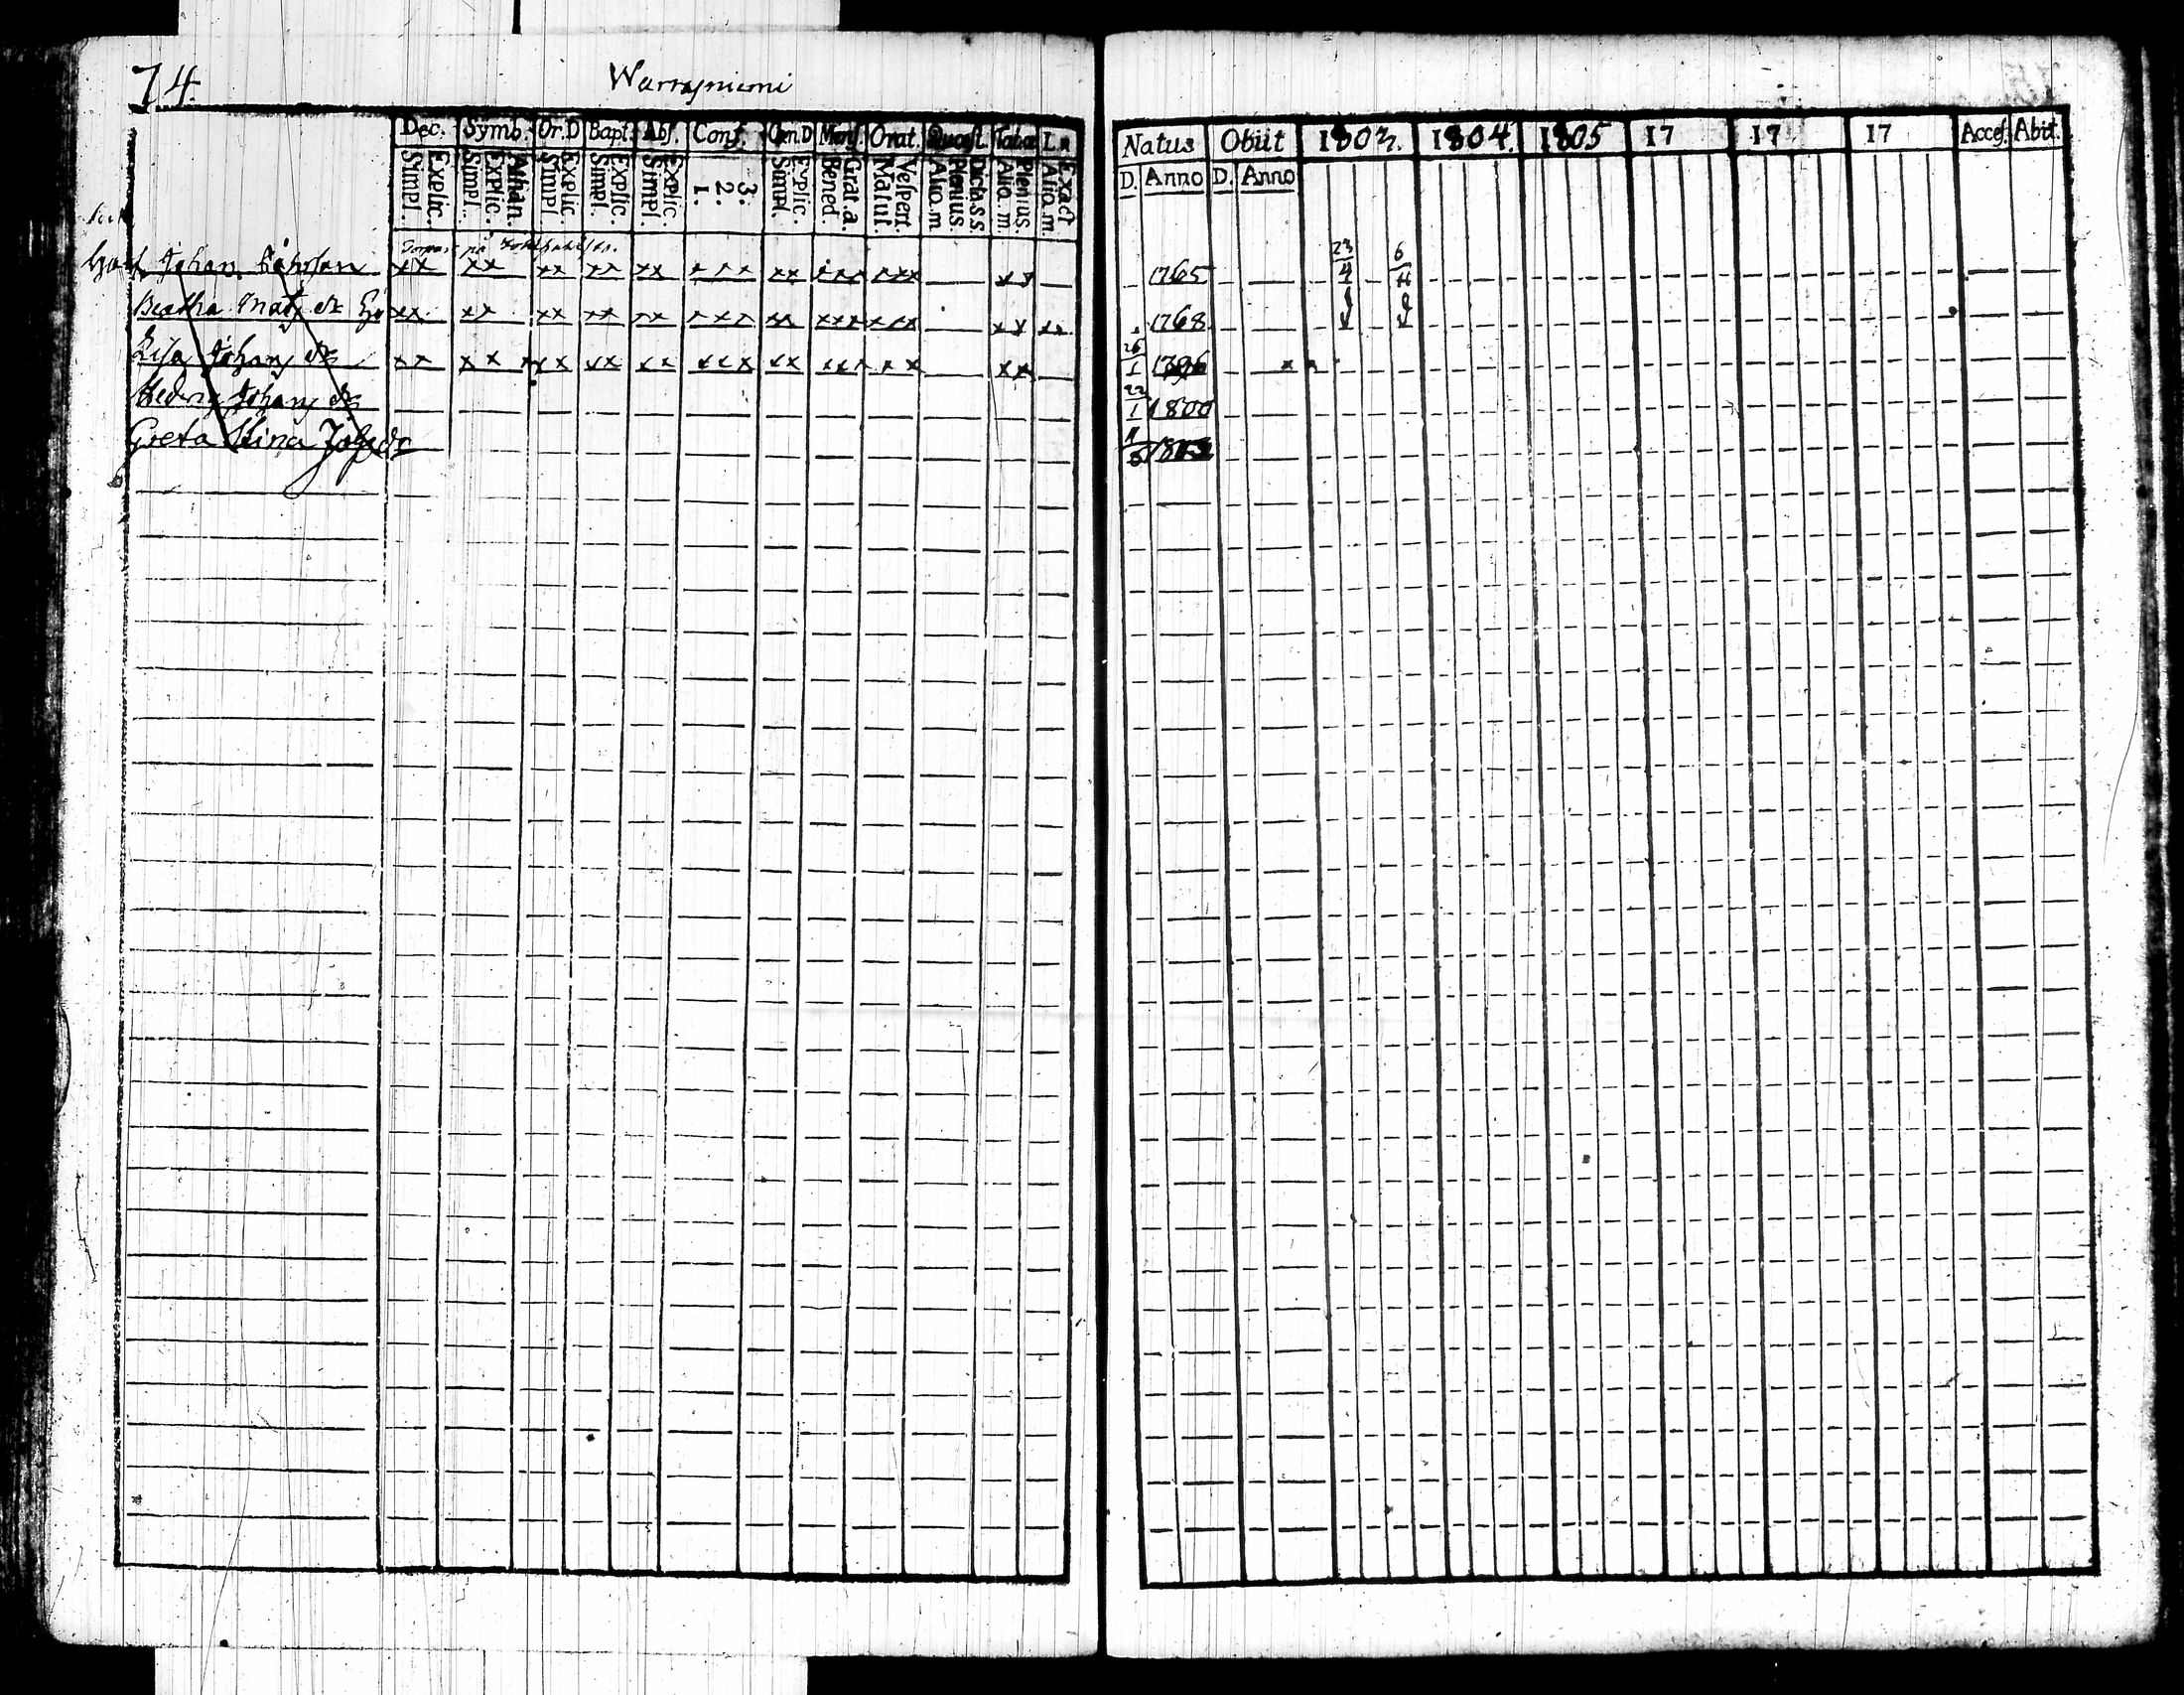 74.
Warrasniemi
Dec. Symb. Or.D Bapt. Abs. Conf. Cœn.D Mens. Orat. Quæst. Tabæ
Simpl. Explic. Simpl. Explic. Athan. Simpl. Explic. Simpl. Explic. Simpl. Explic. 1. 2. 3. Simpl. Explic. Bened. Grat.a. Matut. Vespert. Aliq.m Plenius. Dicta.s.s Aliq.m. Plenius. Aliq.m. Exact
Johan
xx xx xx xx xx xxx xx xxx xxx xx
Beatha Mats dr
xx xx xx xx xx xxx xx xxx xxx xx xx
Lisa Johans dr
xx xxx xx xx xx xxx xx xxx xx xx
Hedvig Johans dr
Greta Stina Johs dr
Natus Obiit 1803. 1804. 1805 17 17 17 Acces. Abit.
D. Anno D. Anno
1765 23/4 6/11
1768
26/1 1796
22/1 1800